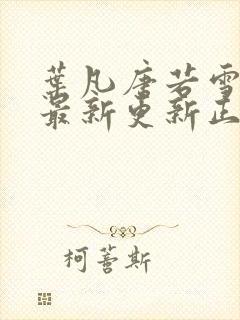 葉凡唐若雪
最新更新正
柯蓍斯